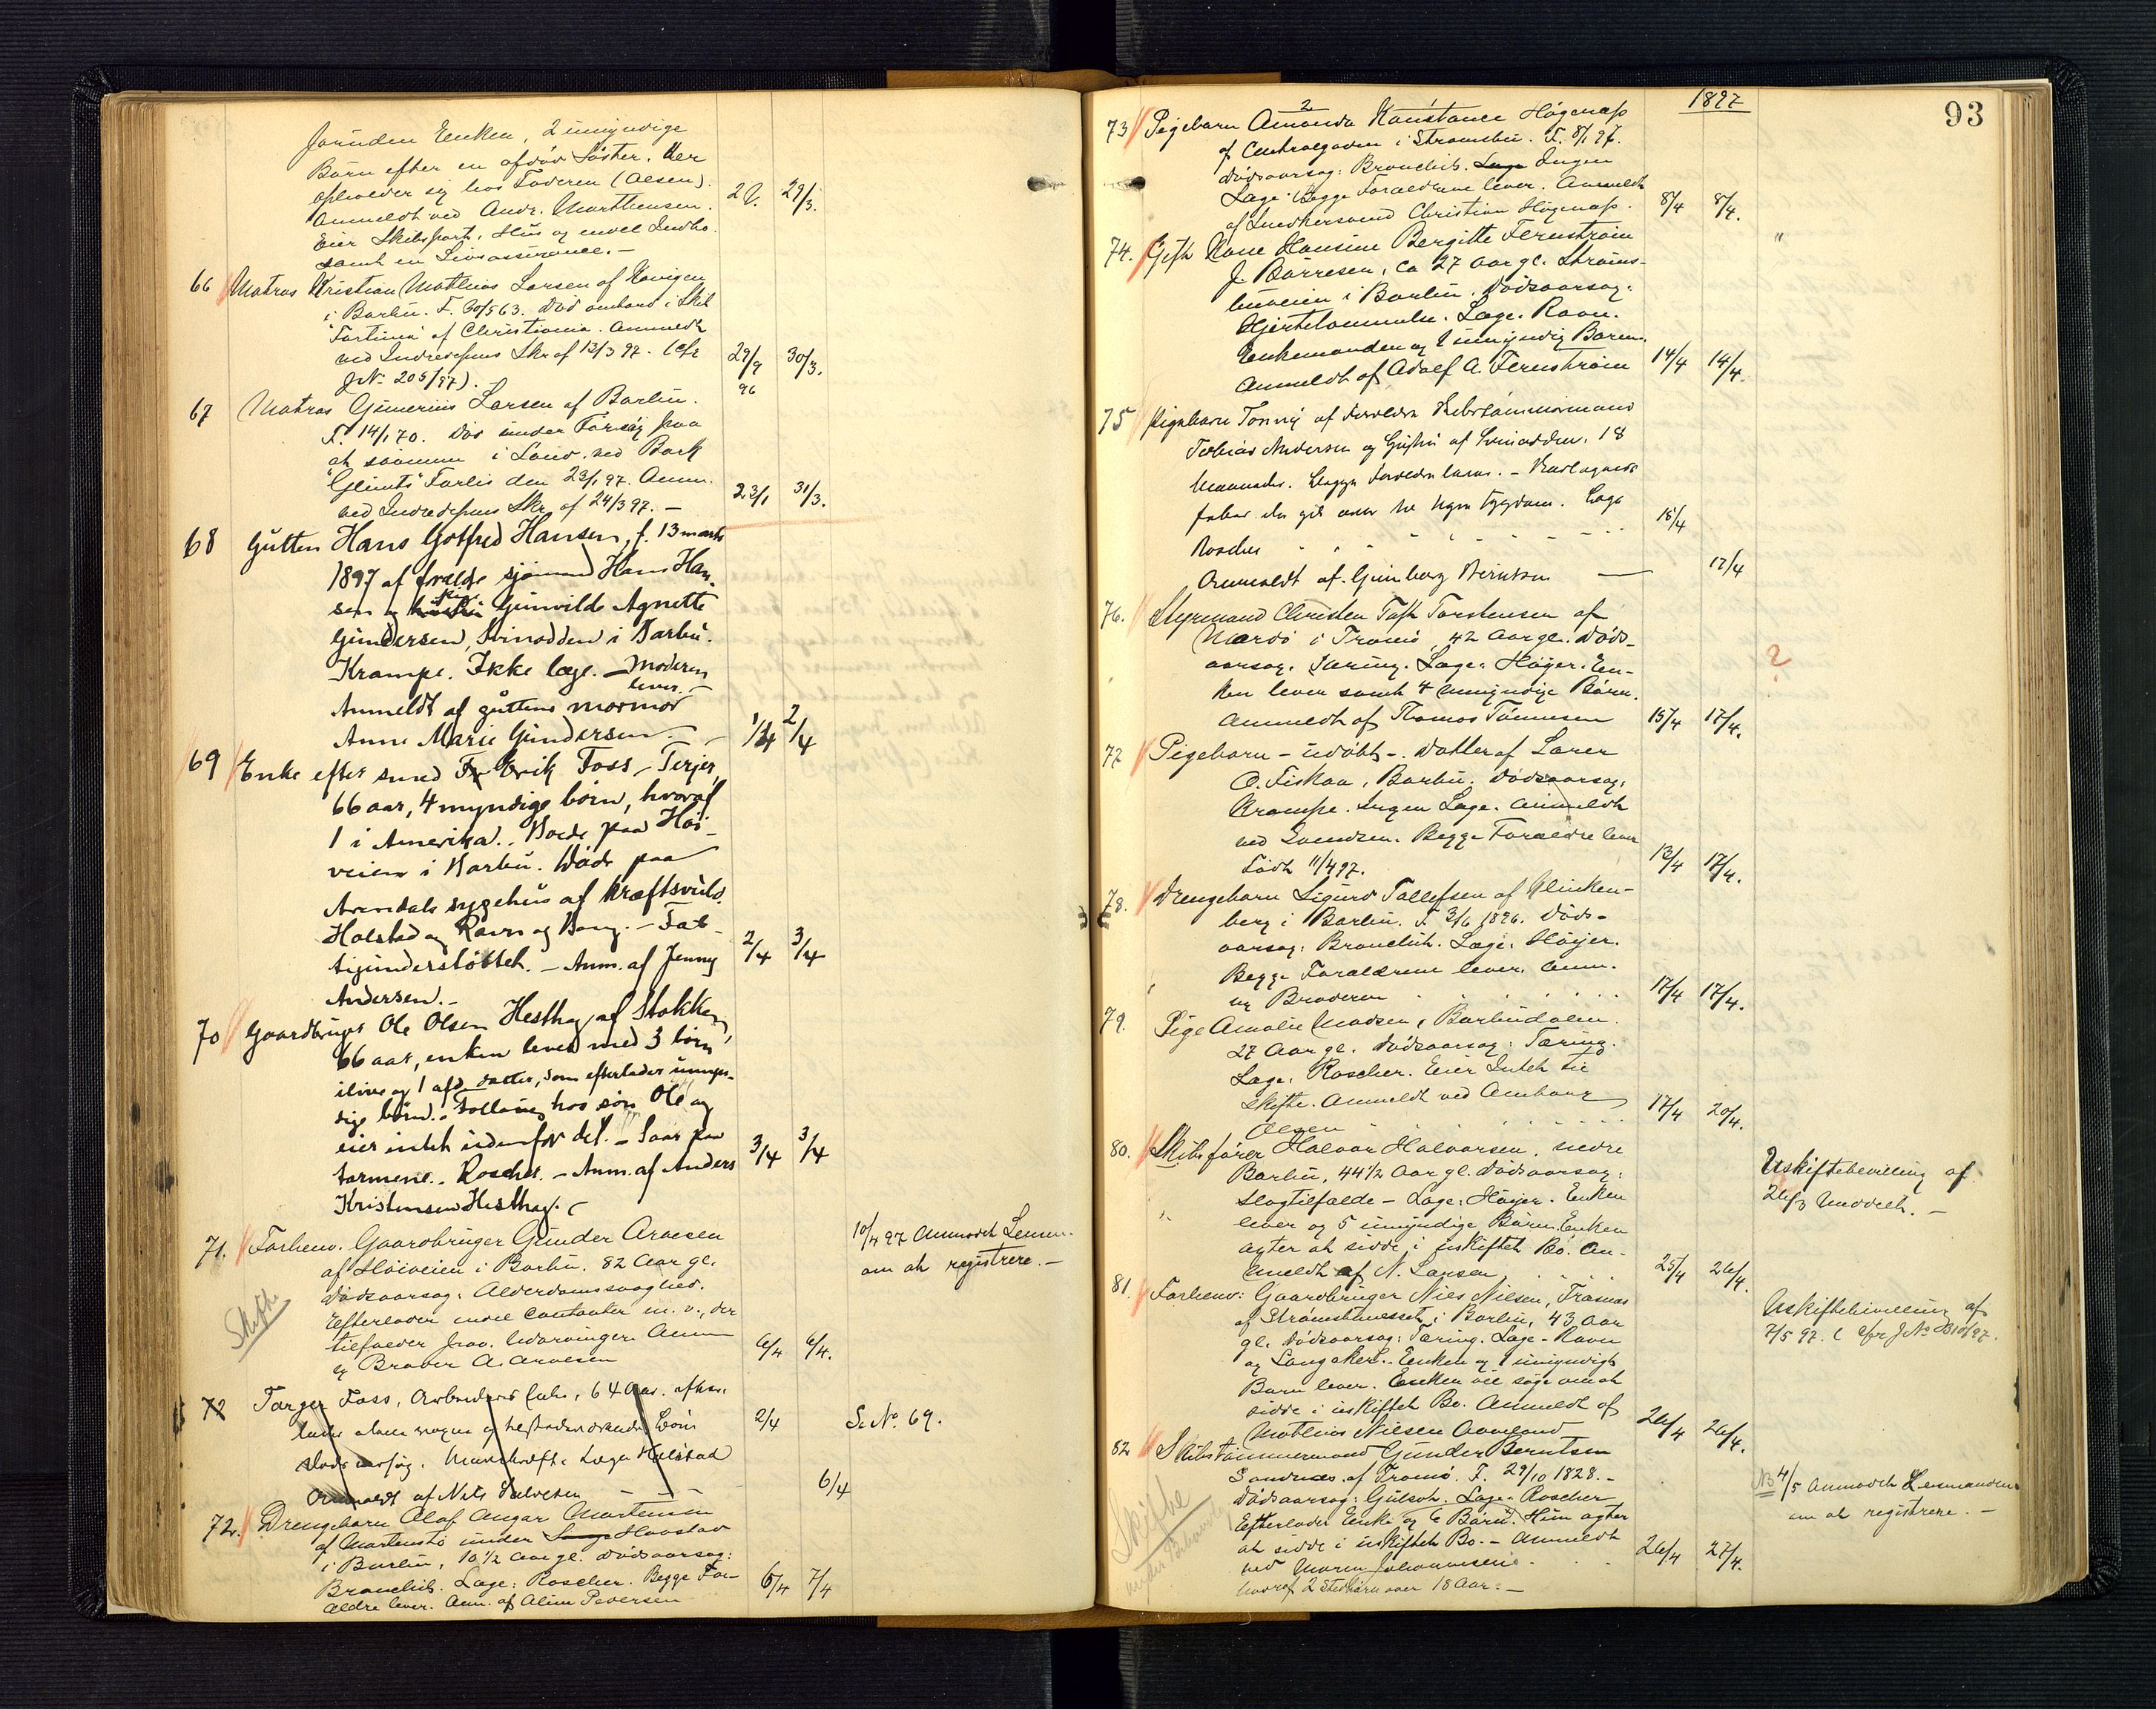 Jørunden Enken, 2 umyndige
Børn efter en afdød Søster. Her
opholder sig hos Faderen (Olsen).
Anmeldt ved Andr. Marthensen.
Eier Skibspart, Hus og Indbo
samt en Livsassurance. -
28. 29/3.
66 Matros Kristian Mathias Larsen af
i Barbu. F. 30/5 63. Død ombord i Skib
"Fortuna" af Christiania. Anmeldt
ved Indredepens Skr. af 13/3 97. (cfr
J№ 205/97).
29/9 96 30/3.
67 Matros Gunerius Larsen af Barbu.
F. 14/1 70. Død under Forsøg paa
at svømme i Land ved Bark
"Glimts" Forlis den 23/1 97. Anm.
ved Indredepens Skr. af 24/3 97. -
23/1 31/3.
68 Gutten Hans Gotfred Hansen, f. 13 marts
1897 af forældre sjømand Hans Han-
sen og Gunvilde Agnette
Gundersen, Svinodden i Barbu.
Krampe. Ikke læge. - Moderen
lever. -
Anmeldt af guttens mormor
Anne Marie Gundersen. -
1/4 2/4
69 Enke efter smed Erik Foss, Terjer,
66 aar, 4 myndige børn, hvoraf
1 i Amerika. Boede paa Høi-
veien i Barbu. Døde paa
Arendals sygehus af Kræftsvuls.
Holstad og Ravn og Bang. - Fat-
tigunderstøttet. - Anm. af Jenny
Andersen. -
2/4 3/4
70 Gaardbruger Ole Olsen Hesthag af Stokken,
66 aar, enken lever med 3 børn
ilive og 1 afd. datter, som efterlader umyn-
dige børn. Follaug hos søn Ole og
eier intet udenfor det. - Saar paa
tarmene. Roscher. - Anm. af Anders
Kristensen Hesthag. -
3/4 3/4
71. Forhenv. Gaardbruger Gunder Arnesen
af Høiveien i Barbu. 82 Aar gl.
Dødsaarsag: Alderdomssvaghed.
Efterlader Contanter m. v., der
tilfalder Udarvinger. Anm
og Broder A. Arnesen
6/4 6/4.
10/4 97 Anmodet Lensm.
om at registrere. -
Skifte
72 Targer Foss, Arbeiders Enke, 64 Aar. efter-
Dødsaarsag. Læge Holstad
Anmeldt af Nils Salvesen
2/4 6/4
Se № 69.
72. Drengebarn Olaf Ansgar Martensen
af Martensbo under Havstad
i Barbu, 10 1/2 Aar gl. Dødsaarsag:
Bronchit. Læge: Roscher. Begge For-
ældre lever. Anm. af Aline Pedersen
6/4 7/4
1897
93
73 Pigebarn Amanda Konstance Høgenæs
af Centralgaarden i Strømsbu. F. 8/1 97.
Dødsaarsag: Bronchit. Ingen
Læge. Begge Forældrene lever. Anmeldt
af Snedkersvend Christian Høgenæs.
8/4 8/4.
74. Gift Kone Hansine Bergitte Fernstrøm
f. Børresen, ca 27 Aar gl. Strøms-
buveien i Barbu. Dødsaarsag:
Hjertelammelse. Læge: Ravn.
Enkemanden og 1 umyndig Barn.
Anmeldt af Adolf A. Fernstrøm
14/4 14/4.
"
75 Pigebarn Tonny af Forældre Skibstømmermand
Tobias Andersen og Hustru af Svinodden. 18
Maaneder. Begge Forældre lever. - Skarlagens
feber der gik over til Sygdom. Læge
Roscher
15/4
Anmeldt af Gunborg Berntsen
17/4
76. Styrmand Christen Taft Torstensen af
Mærdø i Tromø, 42 Aar gl. Døds-
aarsag: Tæring. Læge: Høyer. En-
ken lever samt 4 umyndige Børn.
Anmeldt af Thomas Tønnesen
15/4 17/4.
?
77 Pigebarn - udøbt -. Datter af Lærer
O. Fiskaa, Barbu. Dødsaarsag:
Krampe. Ingen Læge. Anmeldt
ved Svendsen. Begge Forældre lever
Født 11/4 97.
13/4 17/4.
78. Drengebarn Sigurd Tallefsen af Blinken-
berg i Barbu. F. 3/6 1896. Døds-
aarsag: Bronchit. Læge: Høyer.
Begge Forældrene lever. Anm.
og Broderen
17/4 17/4.
79. Pige Amalie Madsen, Barbudalen.
27 Aar gl. Dødsaarsag: Tæring.
Læge: Roscher. Eier Intet til
Skifte. Anmeldt ved Ambaur
Olsen
17/4 20/4.
80. Skibsfører Halvor Halvorsen, nedre
Barbu, 44 1/2 Aar gl. Dødsaarsag:
Slagtilfælde - Læge: Høyer. Enken
lever og 5 umyndige Børn. Enken
agter at sidde i uskiftet Bo. An-
meldt af N. Larsen
25/4 26/4.
Uskiftebevilling af
26/3 Meddelt. -
81. Forhenv: Gaardbruger Niels Nielsen, Trasnæs
af Strømstmesset i Barbu, 43 Aar
gl. Dødsaarsag: Tæring. Læge - Ravn
og Langaker. Enken og 1 umyndigt
Barn lever. Enken vil søge om at
sidde i uskiftet Bo. Anmeldt af
Mathias Nielsen Aamland
26/4 26/4.
Uskiftebevilling af
7/5 97. (cfr J№ 310/97.
82 Skibstømmermand Gunder Berntsen
Sandnæs af Tromø. F. 29/10 1828. -
Dødsaarsag: Gulsot. Læge: Roscher
Efterlader Enke og 6 Børn. Hun agter
at sidde i uskiftet Bo. - Anmeldt
ved Maren Johannesen.
hvoraf 2 Stedbørn over 18 Aar. -
26/4 27/4.
NB 4/5 Anmodet Lensmanden
om at registrere. -
Skifte
under Behandl.